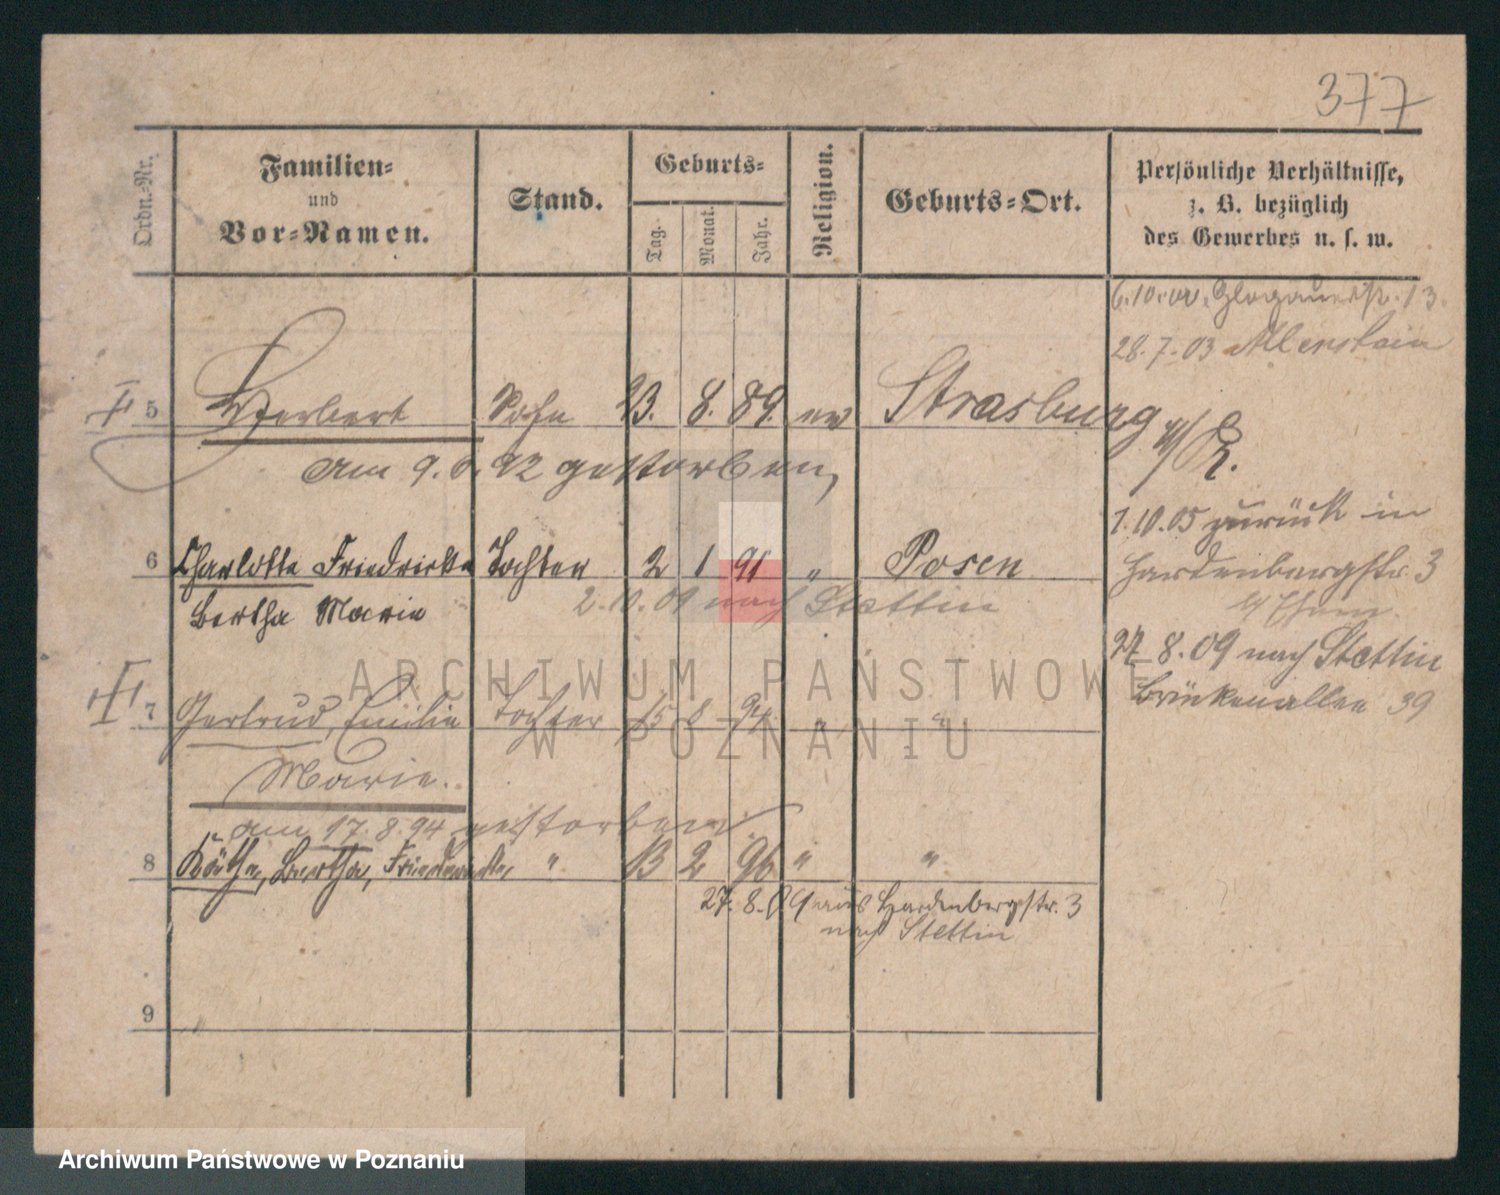 377
Ordn.-Nr.
Familien-
und
Vor-Namen.
Stand.
Geburts-
Tag.
Monat.
Jahr.
Religion.
Geburts-Ort.
Persönliche Verhältnisse,
z. B. bezüglich
des Gewerbes u. s. w.
Glogauerstr. 13.
28.7.03 Allenstein
5 Herbert Sohn 23. 8. 89. ev Strasburg
am 9. 92 gestorben,
1.10.05 zurück in
6 Charlotte Friedricke Tochter 2 1 91 " Posen
Hardenbergstr. 3
2.10.09 nach Stettin
Bertha Marie
27.8.09 nach Stettin
Brückenallee 39
7 Gertrud, Emilie Tochter 15 8 94 " "
Marie.
am 17.8.94 gestorben
8 Käthe, Bertha, Friedericke, " 13 2 96 " "
27.8.09 aus Hardenbergstr. 3
nach Stettin
9
ARCHIWUM PAŃSTWOWE
W POZNANIU
Archiwum Państwowe w Poznaniu